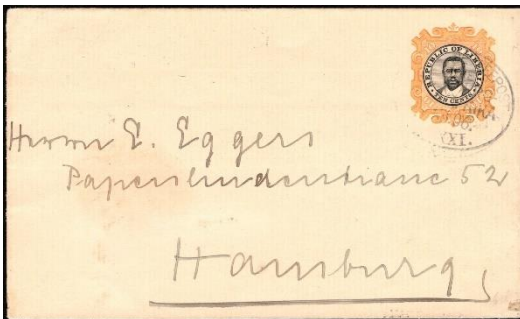 REPUBLIC OF LIBERIA
TEN CENTS
XXI.
Herrn E. Eggers
Papenhuderstrasse 52
Hamburg